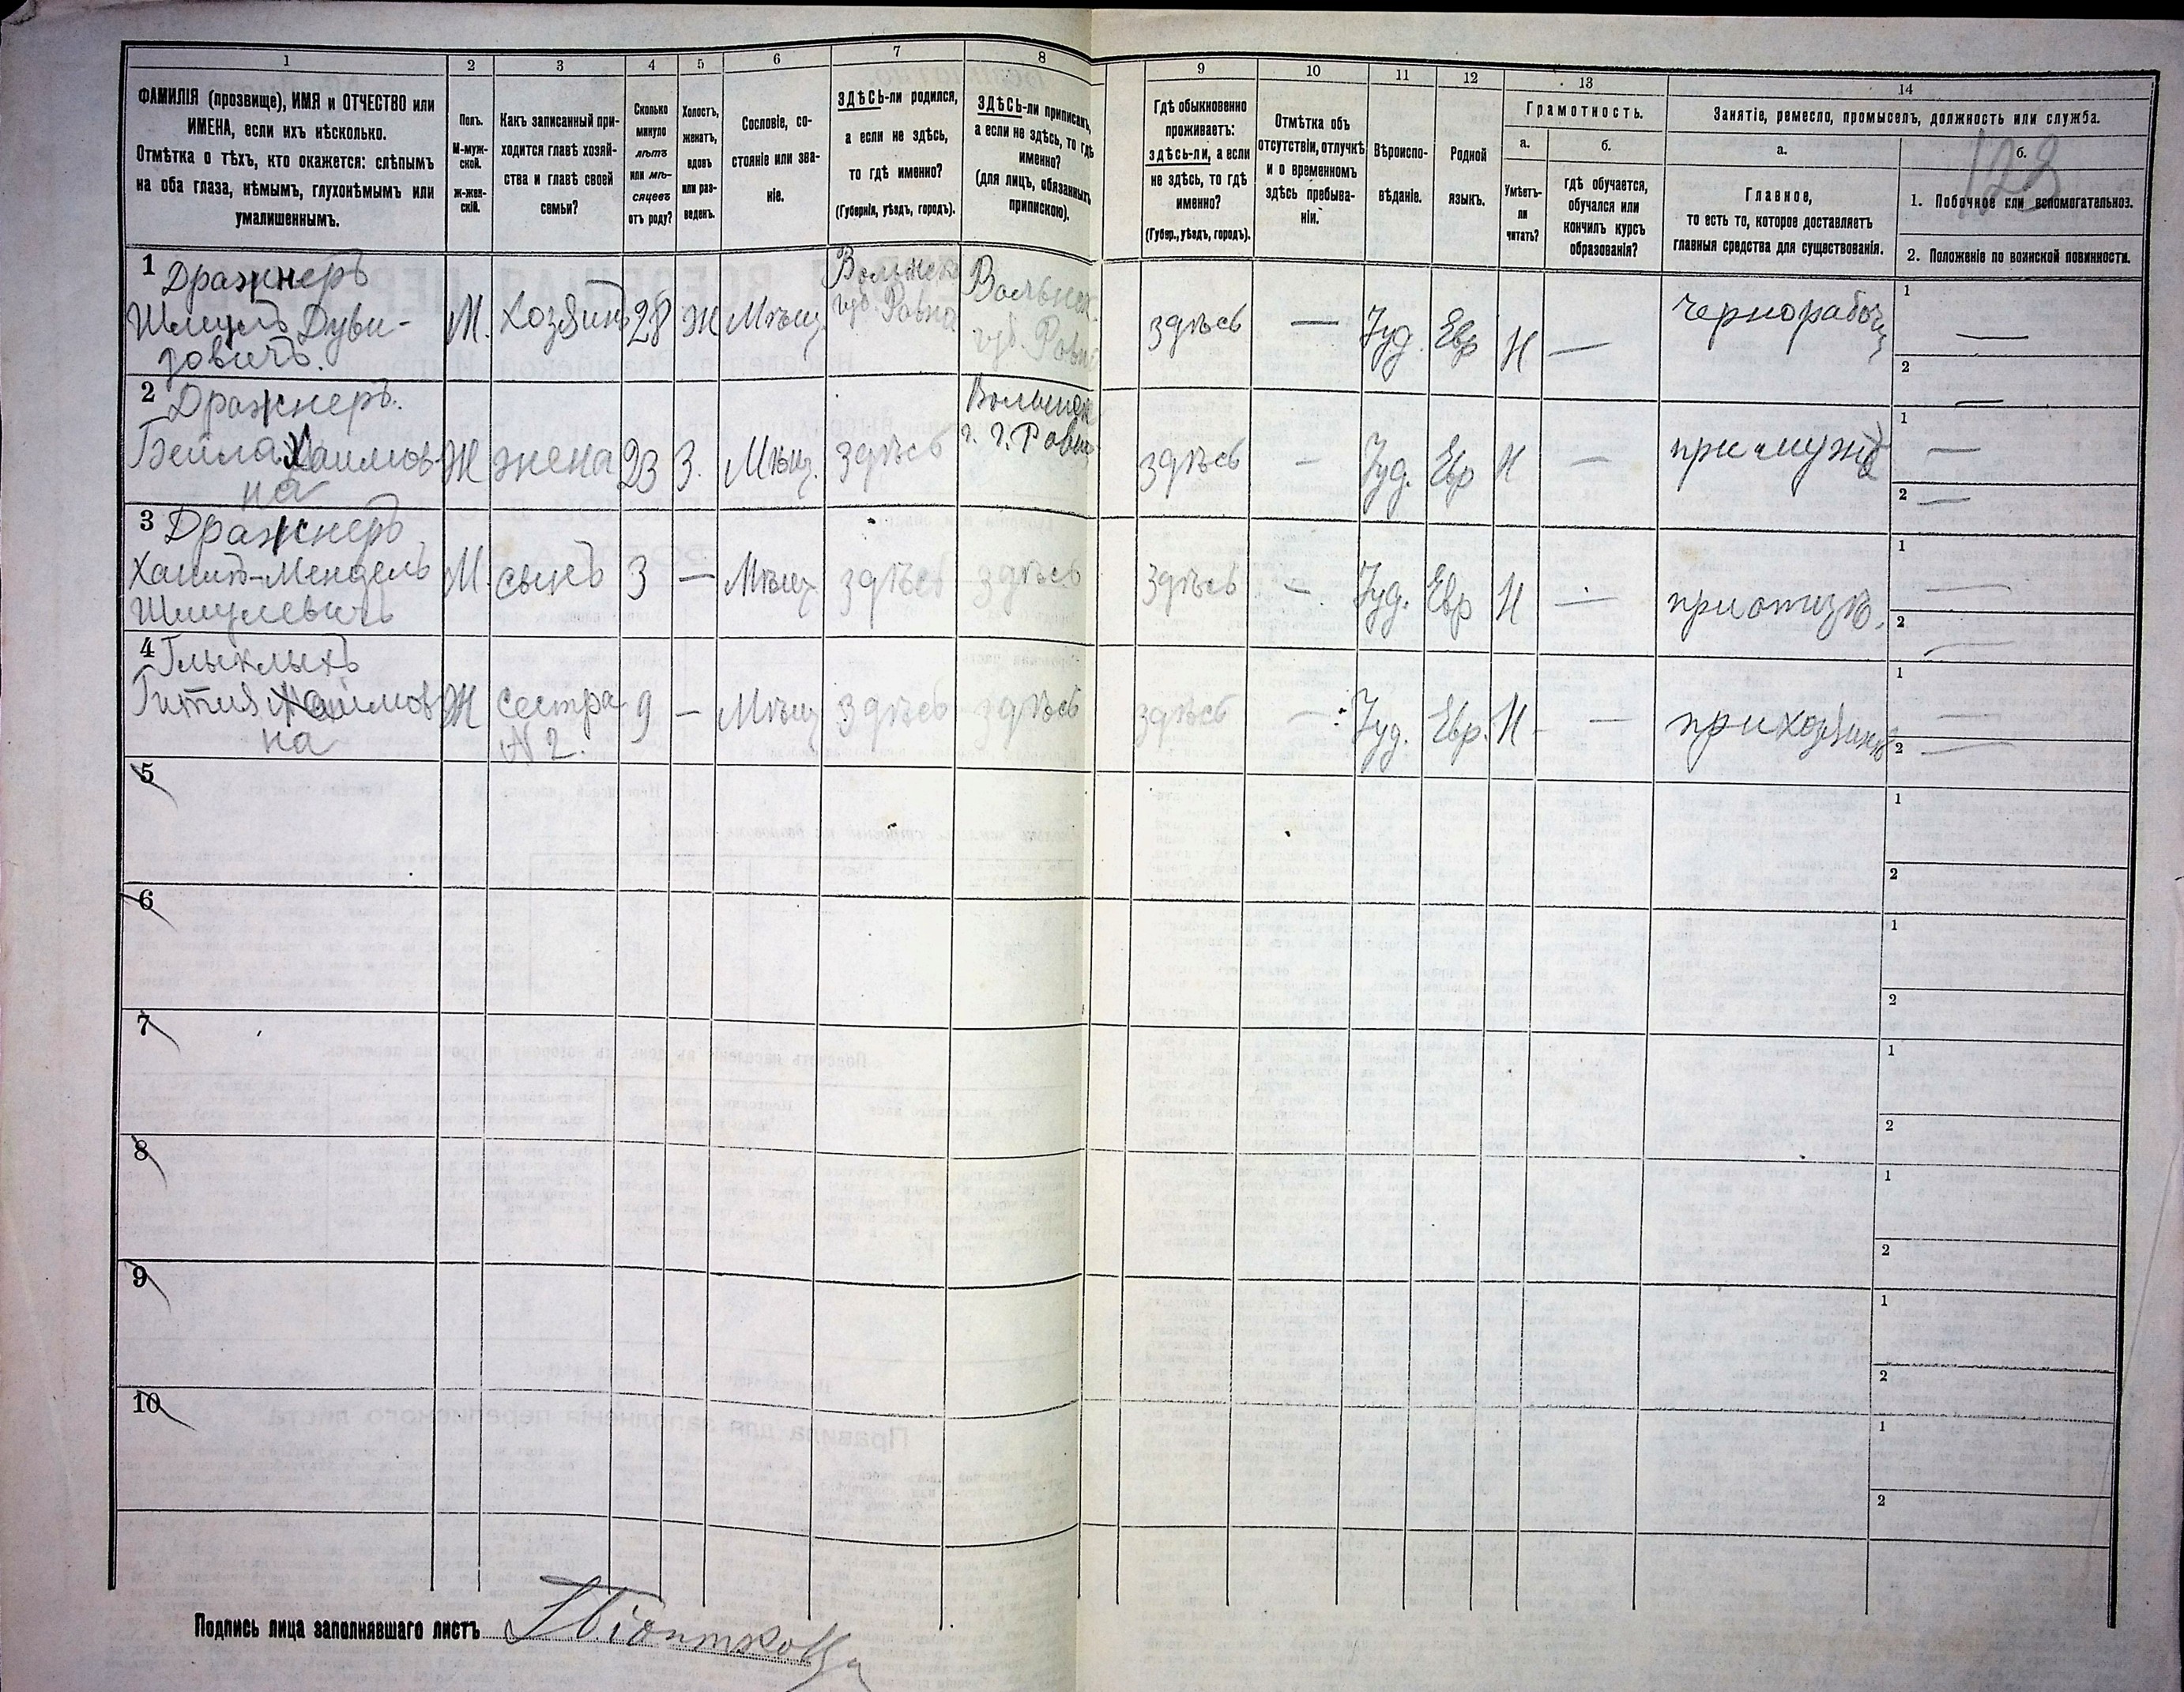 1
ФАМИЛІЯ (прозвище), ИМЯ и ОТЧЕСТВО или
ИМЕНА, если ихъ нѣсколько.
Отмѣтка о тѣхъ, кто окажется: слѣпымъ
на оба глаза, нѣмымъ, глухонѣмымъ или
умалишеннымъ.
2
Полъ.
М-муж-
ской.
ж-жен-
скій.
3
Какъ записанный при-
ходится главѣ хозяй-
ства и главѣ своей
семьи?
4
Сколько
минуло
лѣтъ
или мѣ-
сяцевъ
отъ роду?
5
Холостъ,
женатъ,
вдовъ
или раз-
веденъ.
6
Сословіе, со-
стояніе или зва-
ніе.
7
ЗДѢСЬ-ли родился,
а если не здѣсь,
то гдѣ именно?
(Губернія, уѣздъ, городъ).
8
ЗДѢСЬ-ли приписанъ,
а если не здѣсь, то гдѣ
именно?
(для лицъ, обязанныхъ
припискою).
9
Гдѣ обыкновенно
проживаетъ:
здѣсь-ли, а если
не здѣсь, то гдѣ
именно?
(Губер., уѣздъ, городъ).
10
Отмѣтка объ
отсутствіи, отлучкѣ
и о временномъ
здѣсь пребыва-
ніи.
11
Вѣроиспо-
вѣданіе.
12
Родной
языкъ.
13
Грамотность.
а.
Умѣетъ-
ли
читать?
б.
гдѣ обучается,
обучался или
кончилъ курсъ
образованія?
14
Занятіе, ремесло, промыселъ, должность или служба.
а.
Главное,
то есть то, которое доставляетъ
главныя средства для существованія.
б.
128
1. Побочное или вспомогательноз.
2. Положеніе по воинской повинности.
1 Дражнеръ
Шмуль Дуви-
довичъ.
М.
Хозяинъ
28
Ж
Мѣщ.
Волынск
губ. Ровно
Волынск.
губ. Ровно
здѣсь
—
Іуд.
Евр
Н
—
чернорабочій
1 —
2 —
2 Дражнеръ.
Бейла Хаимов-
на
Ж
жена
23
З.
Мѣщ.
здѣсь
Волынск
г. г. Ровно
здѣсь
—
Іуд.
Евр
Н
—
при мужѣ
1 —
2 —
3 Дражнеръ
Хаимъ-Мендель
Шмулевичъ
М.
сынъ
3
—
Мѣщ
здѣсь
здѣсь
здѣсь
—
Іуд.
Евр
Н
—
при отцѣ.
1 —
2 —
4 Глыклыхъ
Гития Хаимов-
на
Ж
сестра
№ 2.
9
—
Мѣщ
здѣсь
здѣсь
здѣсь
—
Іуд.
Евр.
Н
—
при хозяинѣ
1 —
2 —
5
1
2
6
1
2
7
1
2
8
1
2
9
1
2
10
1
2
Подпись лица заполнявшаго листъ